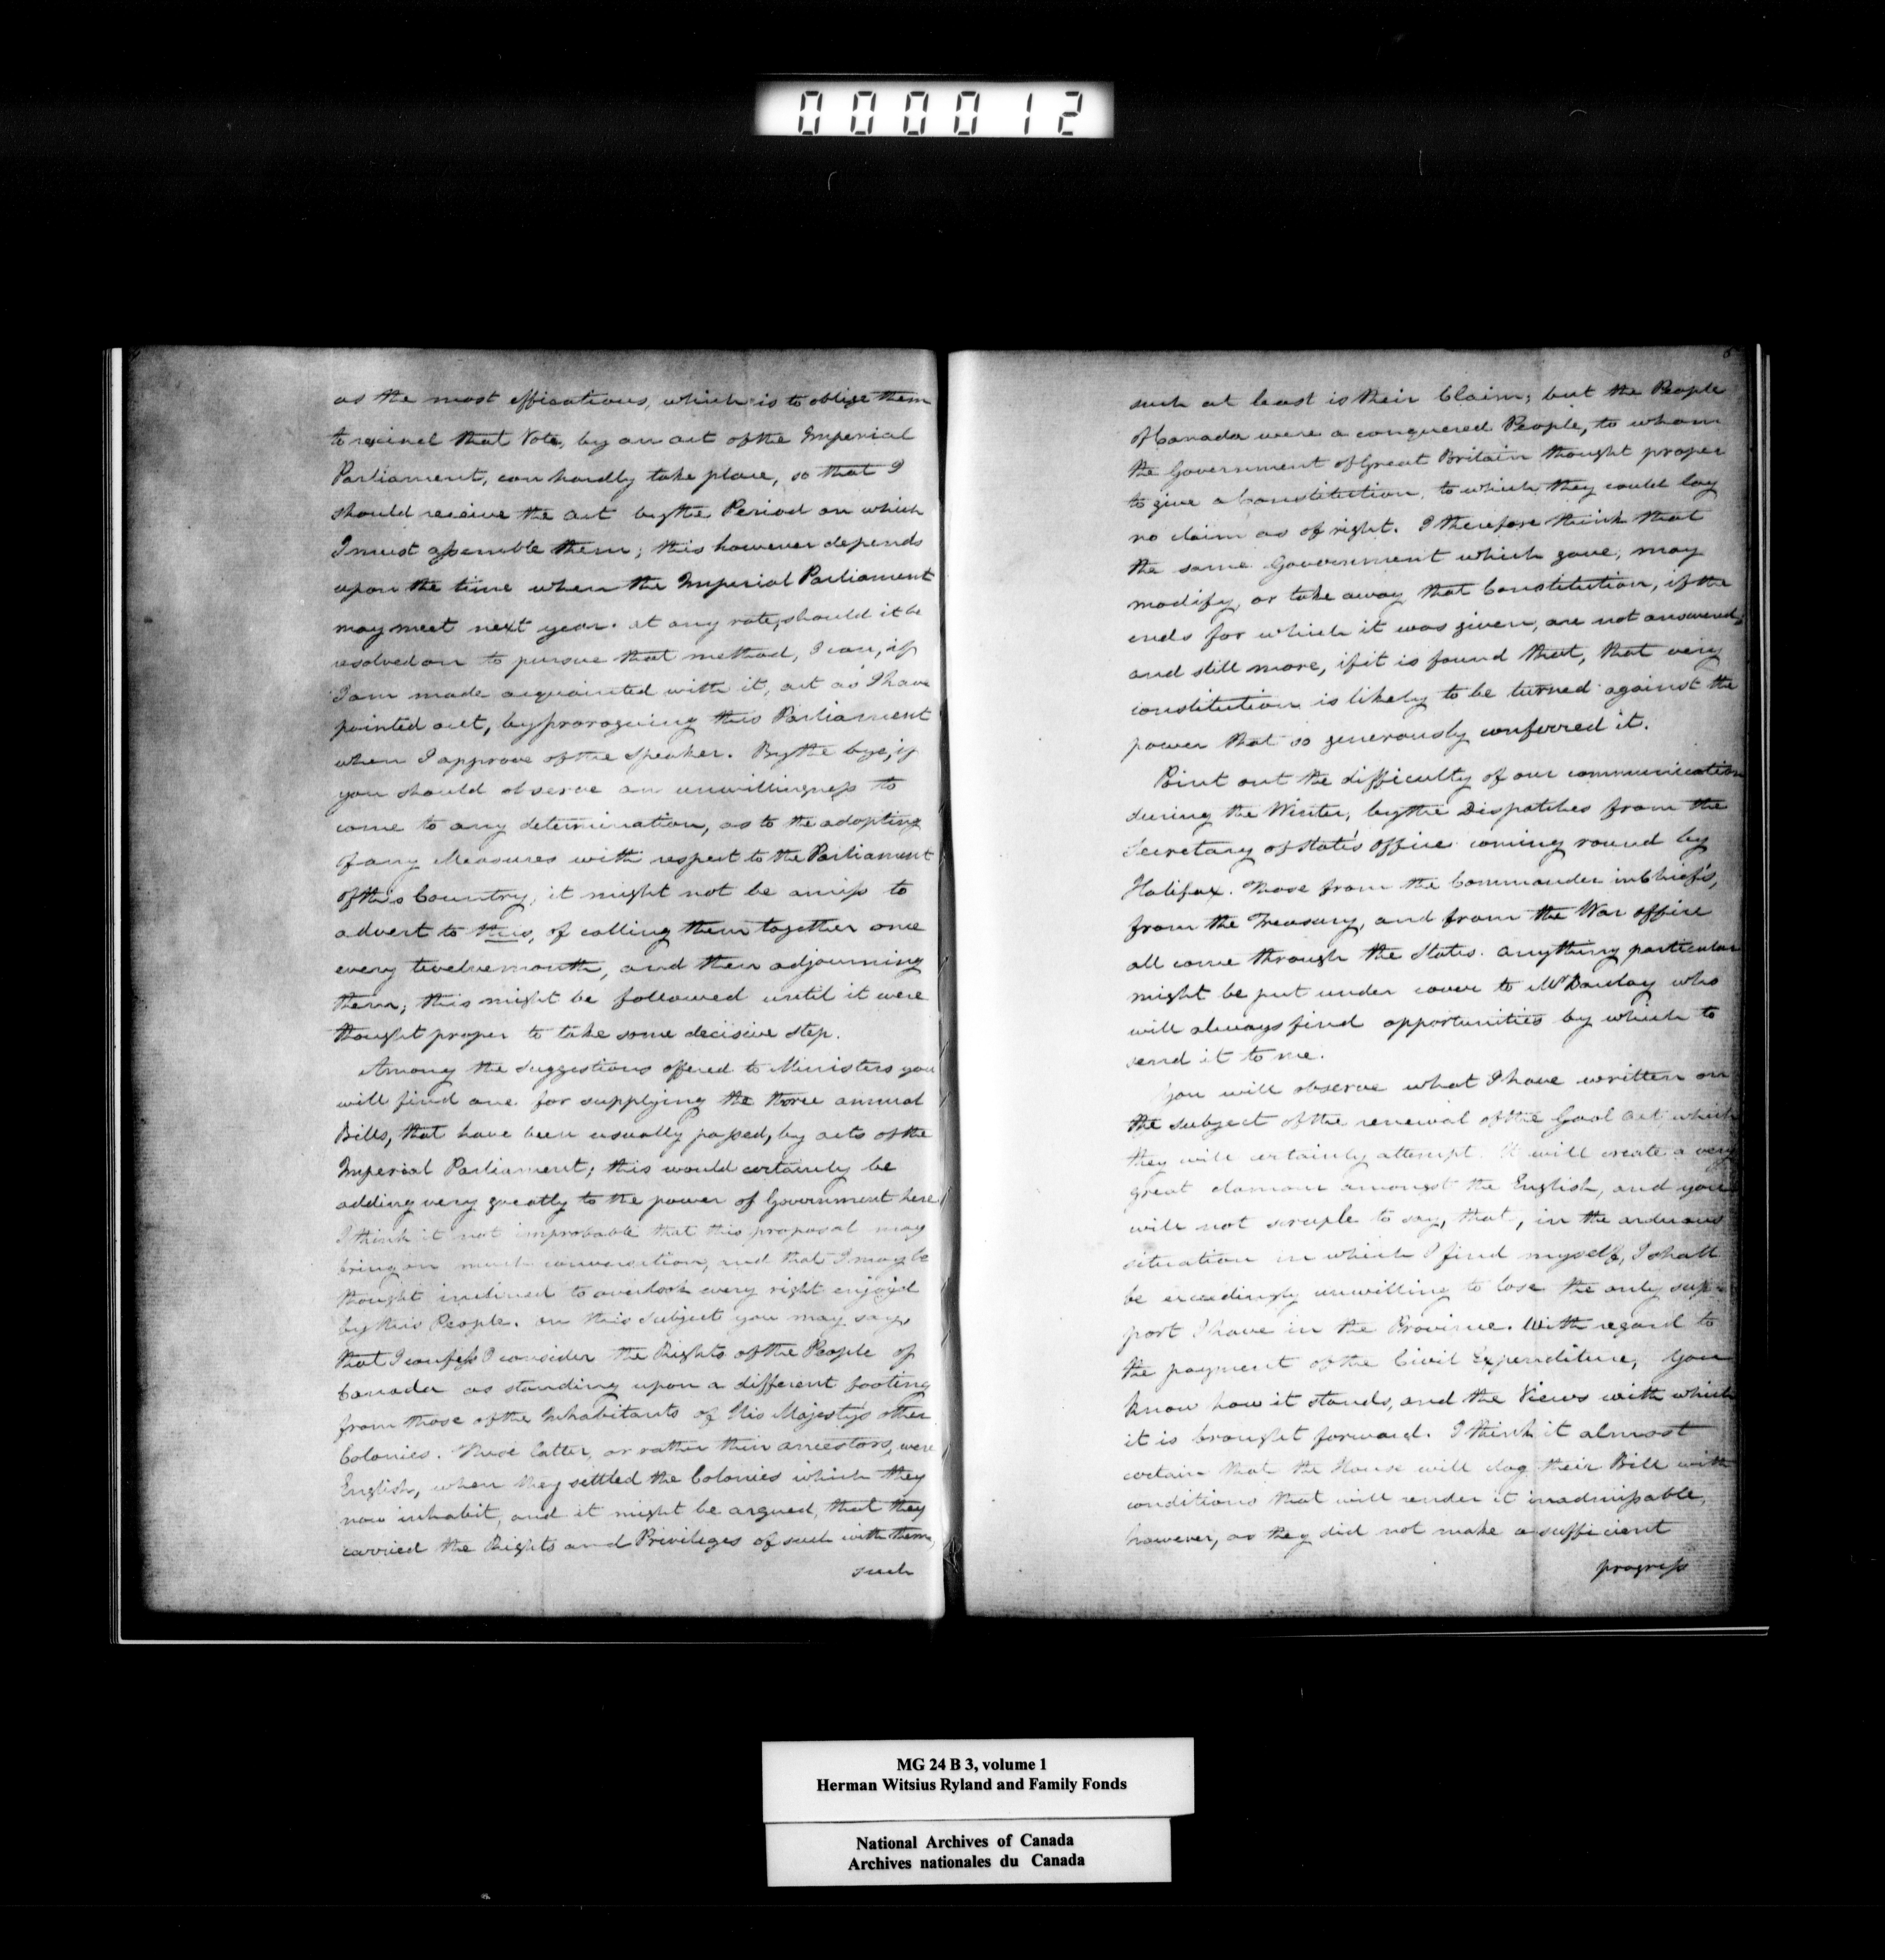 000012
as the most efficatious, which is to oblige them
to rescind that Vote, by an act of the Imperial
Parliament, can hardly take place, so that I
should receive the act by the Period on which
I must assemble them; this however depends
upon the time when the Imperial Parliament
may meet next year. at any rate, should it be
resolved on to pursue that method, I can, if
I am made acquainted with it, act as I have
pointed out, by proroguing this Parliament
when I approve of the Speaker. By the bye, if
you should observe an unwillingness to
come to any determination, as to the adopting
of any Measures with respect to the Parliament
of this Country, it might not be amiss to
advert to this, of calling them together once
every twelvemonth, and then adjourning
them, this might be followed until it were
thought proper to take some decisive step.
Among the Suggestions offered to Ministers you
will find one for supplying the three annual
Bills, that have been usually passed, by acts of the
Imperial Parliament; this would certainly be
adding very greatly to the power of Government here
I think it not improbable that this proposal may
bring on much conversation, and that I may be
thought inclined to overlook every right enjoy'd
by this People. on this Subject you may say,
that I confess I consider the Rights of the People of
Canada as standing upon a different footing
from those of the Inhabitants of His Majesty's other
Colonies. These latter, or rather their ancestors, were
English, when they settled the Colonies which they
now inhabit, and it might be argued, that they
carried the Rights and Privileges of such with them,
such
such at least is their Claim; but the People
of Canada were a conquered People, to whom
the Government of Great Britain thought proper
to give a Constitution, to which they could lay
no claim as of right. I therefore think that
the same Government which gave, may
modify, or take away that Constitution, if the
ends for which it was given, are not answered,
and still more, if it is found that, that very
constitution is likely to be turned against the
power that so generously conferred it.
Point out the difficulty of our communication
during the Winter, by the Dispatches from the
Secretary of State's office coming round by
Halifax. Those from the Commander in Chief's,
from the Treasury, and from the War office
all come through the States. anything particular
might be put under cover to Mr Barclay who
will always find opportunities by which to
send it to me.
You will observe what I have written on
the subject of the renewal of the Gaol Act which
they will certainly attempt. It will create a very
great clamour amongst the English, and you
will not scruple to say, that, in the arduous
situation in which I find myself, I shall
be exceedingly unwilling to lose the only sup-
port I have in the Province. With regard to
the payment of the Civil Expenditure, you
know how it stands, and the Views with which
it is brought forward. I think it almost
certain that the House will clog their Bill with
conditions that will render it inadmissable,
however, as they did not make a sufficient
progress
MG 24 B 3, volume 1
Herman Witsius Ryland and Family Fonds
National Archives of Canada
Archives nationales du Canada